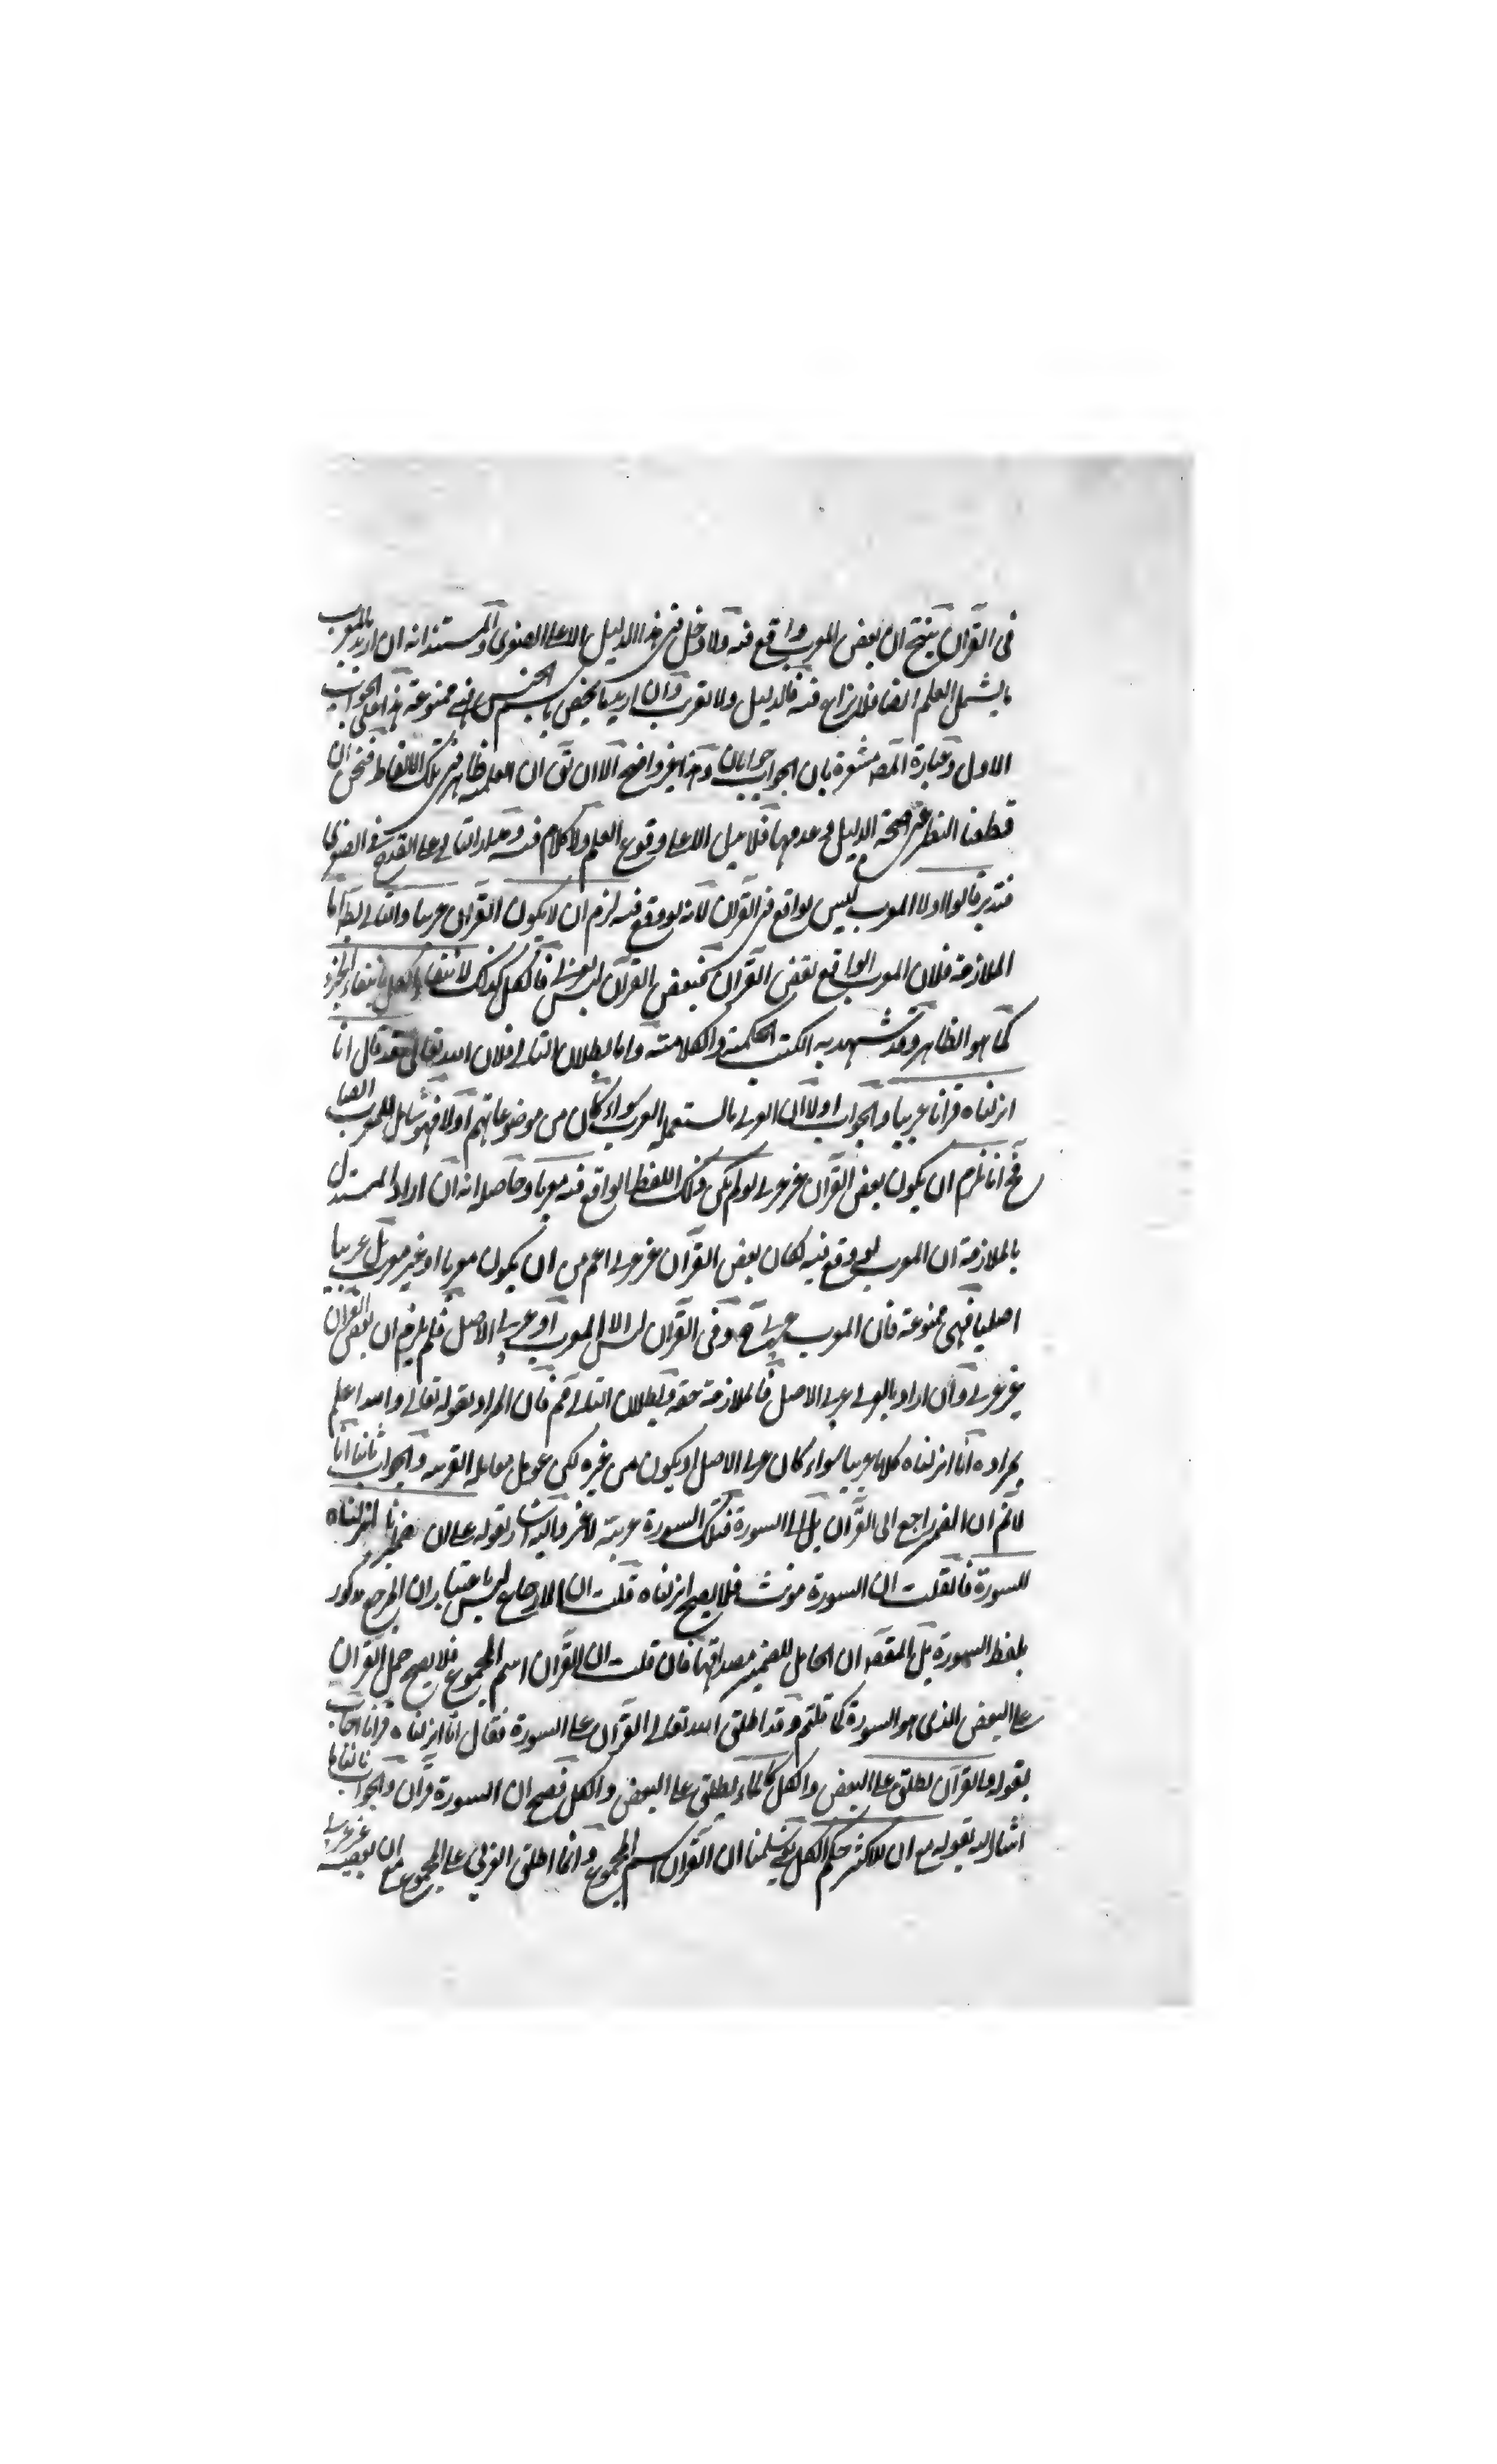 في القرآن ينتج ان بعض المعرب واقع فيه ولا دخل في هذا الدليل الا على الصغرى والمستند انه ان اريد بالمعرب
ما يشمل العلم ايضا فلا نزاع فيه فالدليل ولا تقريب وان اريد ما يختص باسم الجنس فهي ممنوعة هذا على الجواب
الاول وعبارة المصـ مشعرة بان الجواب جوابان وهذا غير واضح الا ان تق ان العلمية ظاهر في تلك الالفاظ فنحن ان
قطعنا النظر عن صحة الدليل وعدمها فلا يدل الا على وقوع العلم ولا كلام فيه ومدار الثاني على القدح في الصغرى
فتدبر قالوا اولا المعرب ليس بواقع في القرآن لانه لو وقع فيه لزم ان لا يكون القرآن عربيا والتالي بط اما
الملازمة فلان المعرب الواقع بعض القرآن فبعض القرآن ليس بعربي فالكل كذلك لانتفاء الكل بانتفاء الجزء
كما هو الظاهر وقد شهد به الكتب الحكمية والكلامية واما بطلان التالي فلان الله تعالى قد قال انا
انزلناه قرآنا عربيا والجواب اولا ان العربي ما استعمله العرب سواء كان من موضوعاتهم او لا فهو شامل للمعرب ايضا
فح انما يلزم ان يكون بعض القرآن غير عربي لو لم يكن ذلك اللفظ الواقع فيه معربا وحاصله انه ان اراد المستدل
بالملازمة ان المعرب لو وقع فيه لكان بعض القرآن غير عربي اعم من ان يكون معربا او غير معرب بل عربيا
اصليا فهي ممنوعة فان المعرب عربي ح وفي القرآن ليس الا المعرب او عربي الاصل فلم يلزم ان بعض القرآن
غير عربي وان اراد بالعربي عربي الاصل فالملازمة حقة وبطلان التالي مم فان المراد بقوله تعالى والله اعلم
بمراده انا انزلناه كلاما عربيا سواء كان عربي الاصل او يكون من غيره لكن عومل معاملة العربية والجواب ثانيا انا
لا نم ان الضمير راجع الى القرآن بل الى السورة فتلك السورة عربية لا غير واليه اشار بقوله على ان ضمير انا انزلناه
للسورة فان قلت ان السورة مونث فلا يصح انزلناه قلت ان الارجاع ليس باعتبار ان المرجع مذكور
بلفظ السورة بل المقصـ ان الحامل للضمير مصداقها فان قلت ان القرآن اسم المجموع فلا يصح حمل القرآن
على البعض الذي هو السورة كما قلتم وقد اطلق الله تعالى القرآن على السورة فقال انا انزلناه قرآنا اجاب
بقوله والقرآن يطلق على البعض والكل كالماء يطلق على البعض والكل فصح ان السورة قرآن والجواب ثالثا ما
اشار اليه بقوله مع ان للاكثر حكم الكل يعني سلمنا ان القرآن اسم المجموع وانما اطلق العربي على المجموع مع ان بعضه غير عربي